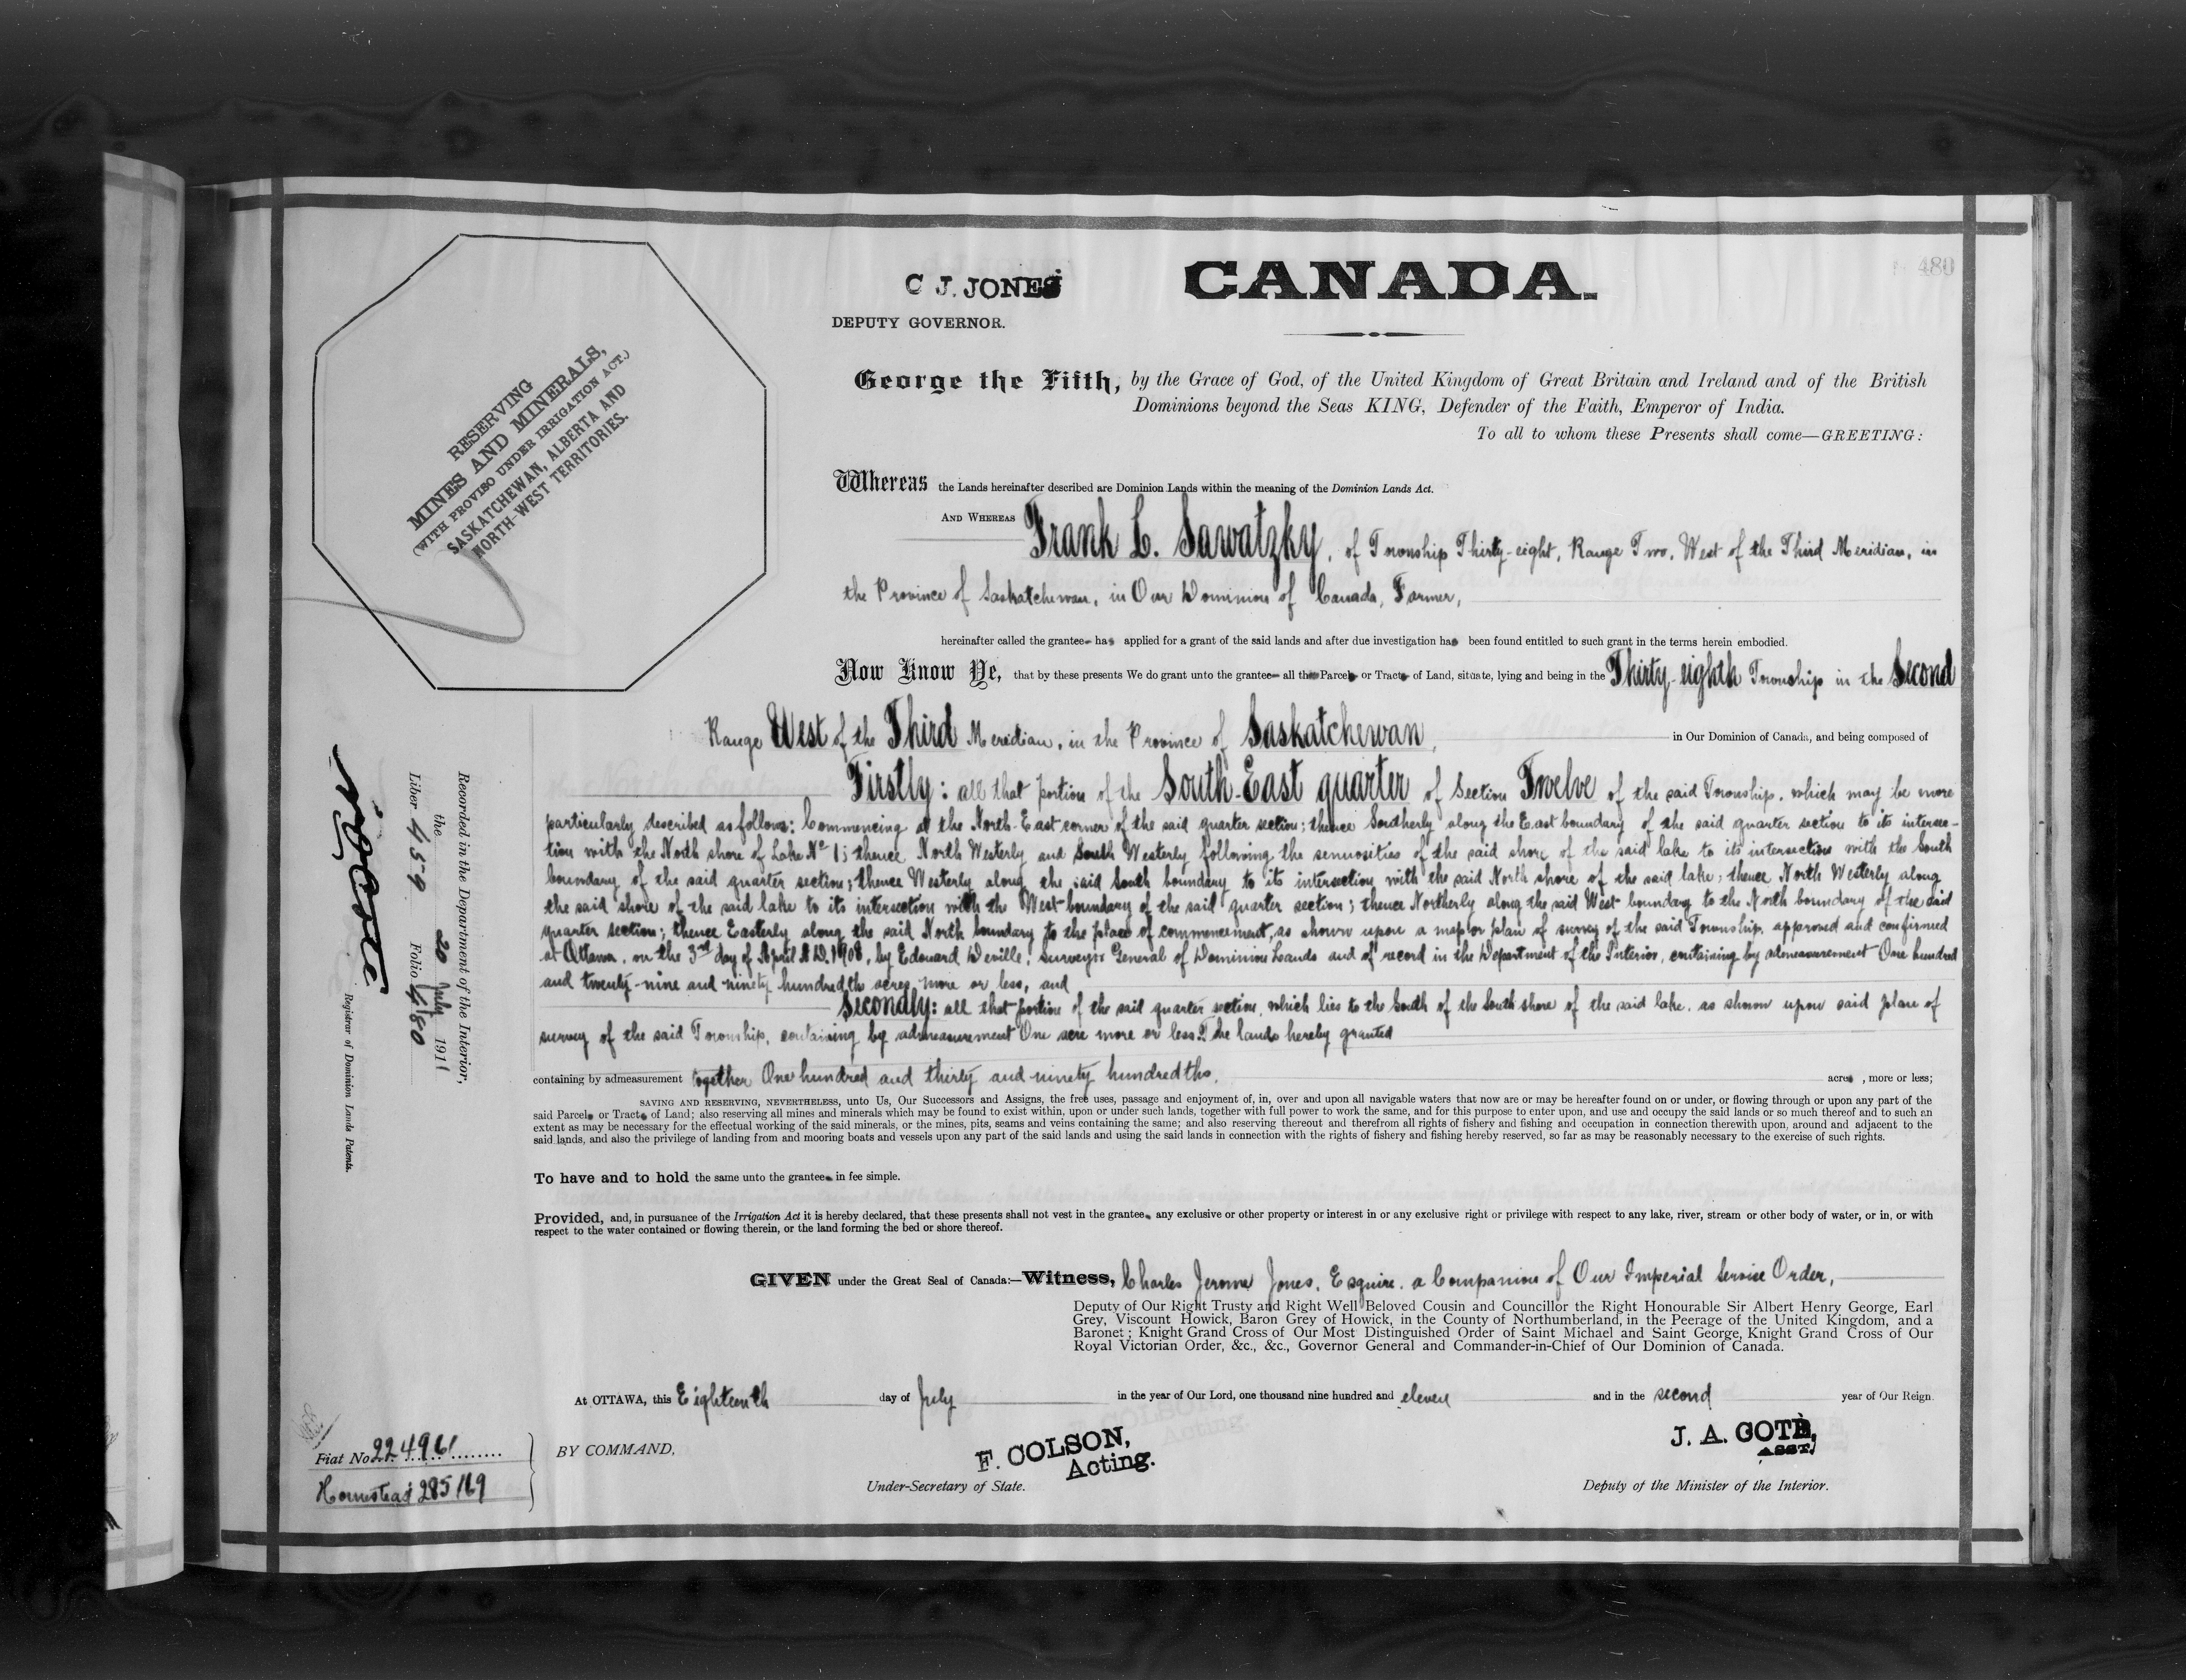 480
C J. JONES
CANADA.
DEPUTY GOVERNOR.
RESERVING
MINES AND MINERALS,
(WITH PROVISO UNDER IRRIGATION ACT.)
SASKATCHEWAN, ALBERTA AND
NORTH-WEST TERRITORIES.
George the Fifth, by the Grace of God, of the United Kingdom of Great Britain and Ireland and of the British
Dominions beyond the Seas KING, Defender of the Faith, Emperor of India.
To all to whom these Presents shall come—GREETING:
Whereas the Lands hereinafter described are Dominion Lands within the meaning of the Dominion Lands Act.
AND WHEREAS Frank L. Sawatzky, of Township Thirty-eight, Range Two, West of the Third Meridian, in
the Province of Saskatchewan, in Our Dominion of Canada, Farmer,
hereinafter called the grantee has applied for a grant of the said lands and after due investigation has been found entitled to such grant in the terms herein embodied.
Now Know Ye, that by these presents We do grant unto the grantee all the Parcel or Tract of Land, situate, lying and being in the Thirty-eighth Township in the Second
Range West of the Third Meridian, in the Province of Saskatchewan, in Our Dominion of Canada, and being composed of
Firstly: all that portion of the South-East quarter of Section Twelve of the said Township, which may be more
particularly described as follows: Commencing at the North-East corner of the said quarter section; thence Southerly along the East boundary of the said quarter section to its intersec-
tion with the North shore of Lake No 1; thence North Westerly and South Westerly following the sinuosities of the said shore of the said lake to its intersection with the South
boundary of the said quarter section; thence Westerly along the said South boundary to its intersection with the said North shore of the said lake; thence North Westerly along
the said shore of the said lake to its intersection with the West boundary of the said quarter section; thence Northerly along the said West boundary to the North boundary of the said
quarter section; thence Easterly along the said North boundary to the place of commencement, as shown upon a map or plan of survey of the said Township, approved and confirmed
at Ottawa, on the 3rd day of April A.D. 1908, by Edouard Deville, Surveyor General of Dominion Lands and of record in the Department of the Interior, containing by admeasurement One hundred
and twenty-nine and ninety hundredths acres, more or less, and
Secondly: all that portion of the said quarter section, which lies to the South of the South shore of the said lake, as shown upon said plan of
survey of the said Township, containing by admeasurement One acre more or less. The lands hereby granted
containing by admeasurement together One hundred and thirty and ninety hundredths, acres, more or less;
SAVING AND RESERVING, NEVERTHELESS, unto Us, Our Successors and Assigns, the free uses, passage and enjoyment of, in, over and upon all navigable waters that now are or may be hereafter found on or under, or flowing through or upon any part of the
said Parcels or Tracts of Land; also reserving all mines and minerals which may be found to exist within, upon or under such lands, together with full power to work the same, and for this purpose to enter upon, and use and occupy the said lands or so much thereof and to such an
extent as may be necessary for the effectual working of the said minerals, or the mines, pits, seams and veins containing the same; and also reserving thereout and therefrom all rights of fishery and fishing and occupation in connection therewith upon, around and adjacent to the
said lands, and also the privilege of landing from and mooring boats and vessels upon any part of the said lands and using the said lands in connection with the rights of fishery and fishing hereby reserved, so far as may be reasonably necessary to the exercise of such rights.
To have and to hold the same unto the grantee in fee simple.
Provided, and, in pursuance of the Irrigation Act it is hereby declared, that these presents shall not vest in the grantee any exclusive or other property or interest in or any exclusive right or privilege with respect to any lake, river, stream or other body of water, or in, or with
respect to the water contained or flowing therein, or the land forming the bed or shore thereof.
GIVEN under the Great Seal of Canada:—Witness, Charles Jerome Jones, Esquire, a Companion of Our Imperial Service Order,
Deputy of Our Right Trusty and Right Well Beloved Cousin and Councillor the Right Honourable Sir Albert Henry George, Earl
Grey, Viscount Howick, Baron Grey of Howick, in the County of Northumberland, in the Peerage of the United Kingdom, and a
Baronet; Knight Grand Cross of Our Most Distinguished Order of Saint Michael and Saint George, Knight Grand Cross of Our
Royal Victorian Order, &c., &c., Governor General and Commander-in-Chief of Our Dominion of Canada.
At OTTAWA, this Eighteenth day of July in the year of Our Lord, one thousand nine hundred and eleven and in the second year of Our Reign.
BY COMMAND,
F. COLSON,
Acting.
Under-Secretary of State.
J. A. COTE,
ASST.
Deputy of the Minister of the Interior.
Fiat No 224961
Homestead 285169
Recorded in the Department of the Interior,
the 20 July 1911
Liber 459 Folio 480
N. O. Coté
Registrar of Dominion Lands Patents.